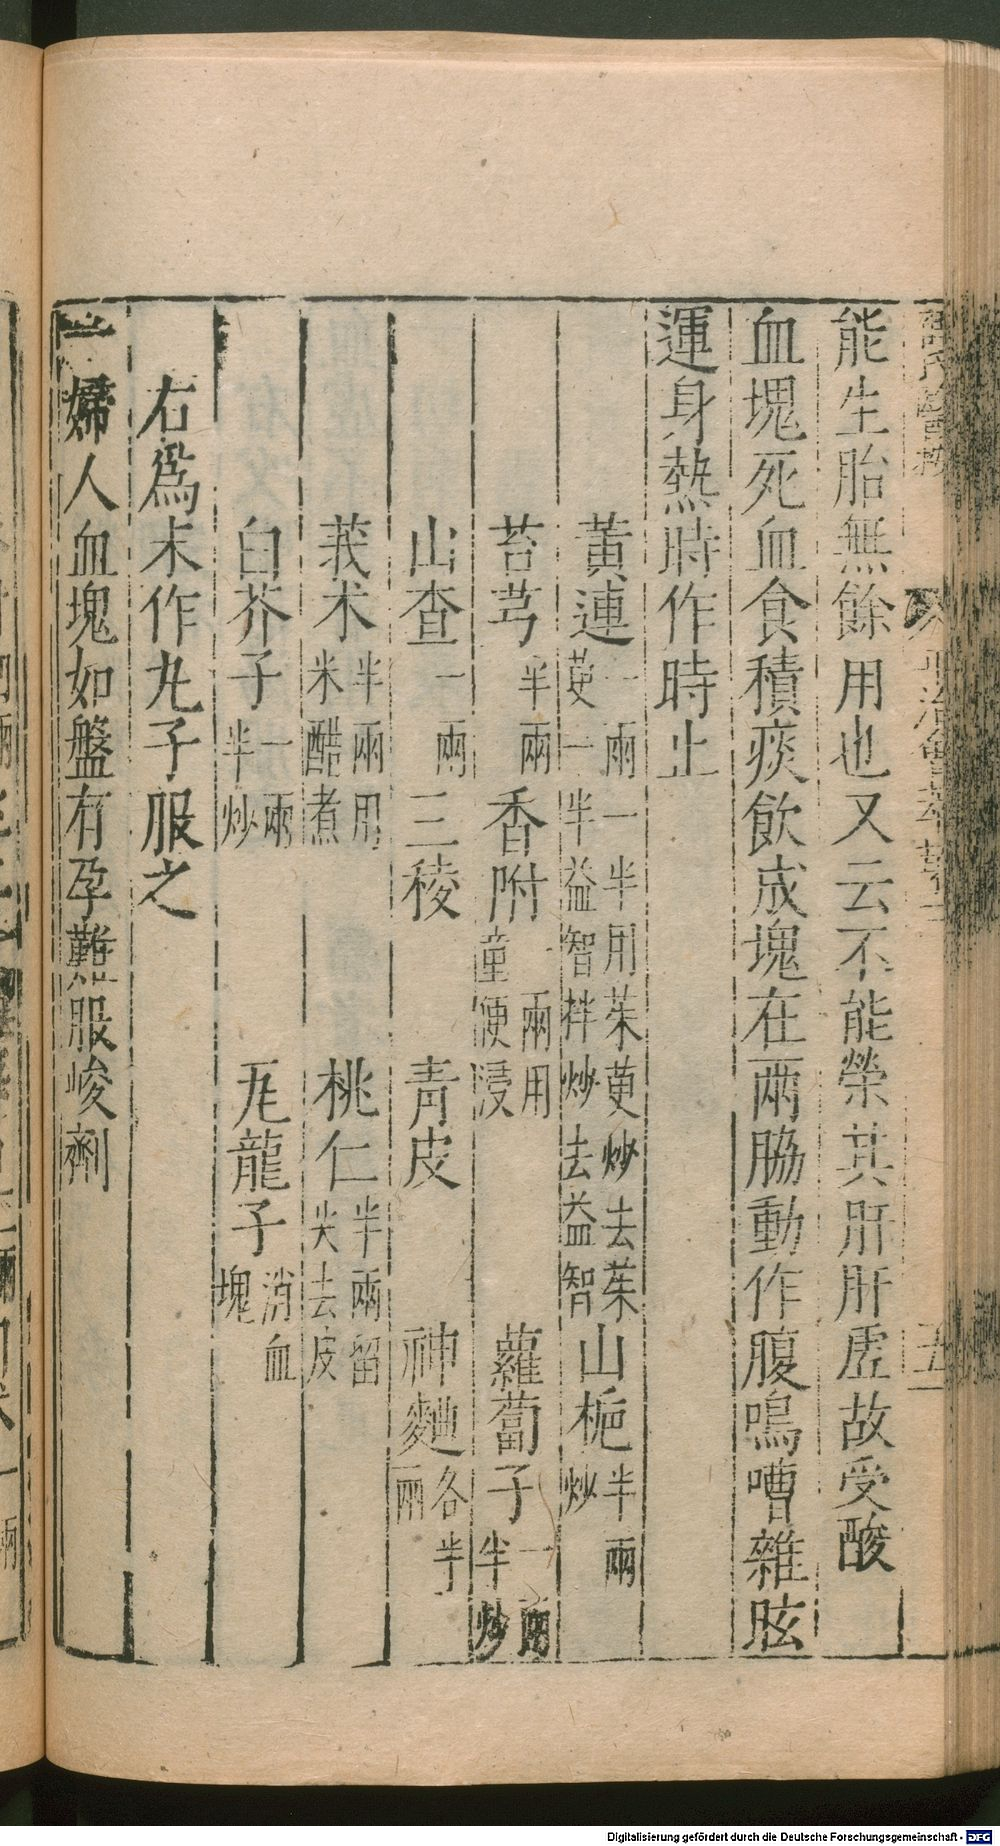 能生胎無餘用也又云不能榮其肝肝虛故受酸
血塊死血食積痰飲成塊在兩脇動作腹鳴嘈雜眩
運身熱時作時止
黃連一兩一半用茱萸炒去茱萸一半益智拌炒去益智 山梔半兩炒
苔芎半兩 香附一兩用童便浸 蘿蔔子一兩半炒
山查一兩 三稜 青皮 神麯各半兩
莪朮半兩用米醋煮 桃仁半兩留尖去皮
白芥子一兩半炒 尨龍子消血塊
右爲末作丸子服之
一婦人血塊如盤有孕難服峻劑
Digitalisierung gefördert durch die Deutsche Forschungsgemeinschaft - DFG